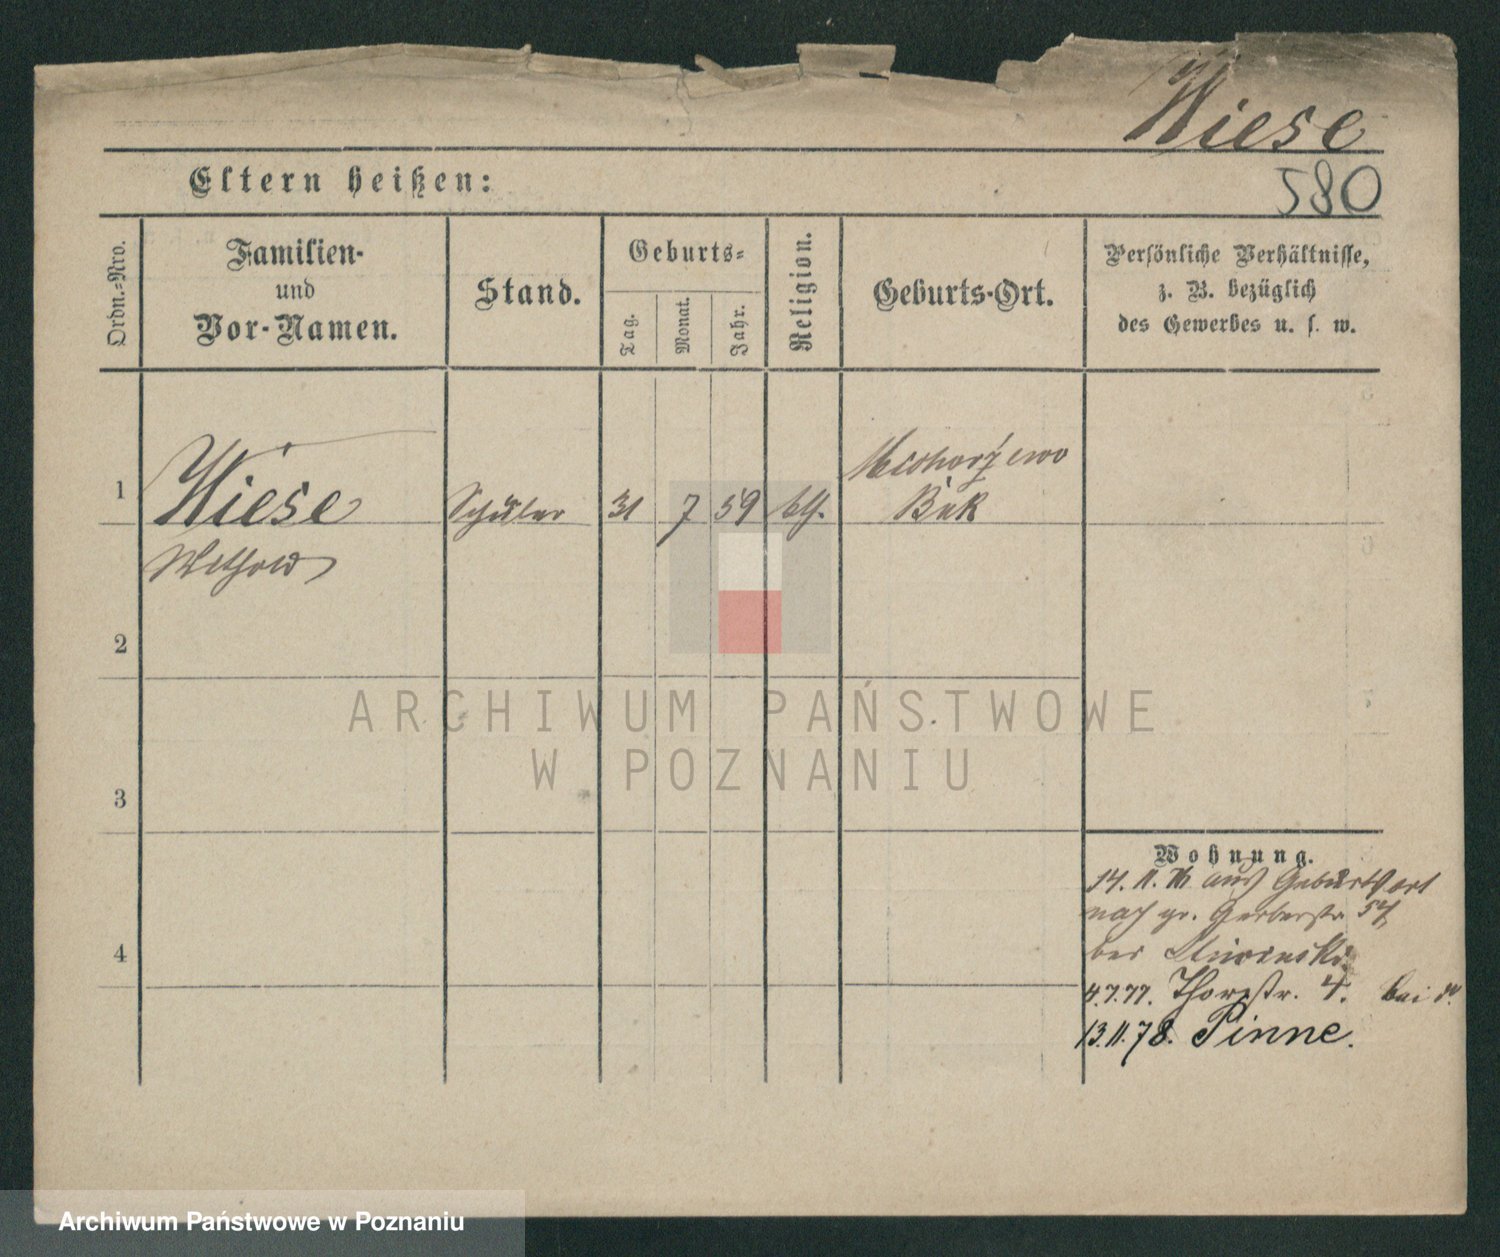 Wiese
580
Eltern heißen:
Ordn.-Nro.
Familien-
und
Vor-Namen.
Stand.
Geburts-
Tag.
Monat.
Jahr.
Religion.
Geburts-Ort.
Persönliche Verhältnisse,
z. B. bezüglich
des Gewerbes u. s. w.
1
Wiese
Schüler
31
7
59
kth.
Buk
2
3
4
Wohnung.
14. 11. 76 aus Geburtsort
nach gr. Gerberstr. 54
bei
4.7.77. Thorstr. 4. bei do
13.11.78. Pinne.
ARCHIWUM PAŃSTWOWE
W POZNANIU
Archiwum Państwowe w Poznaniu